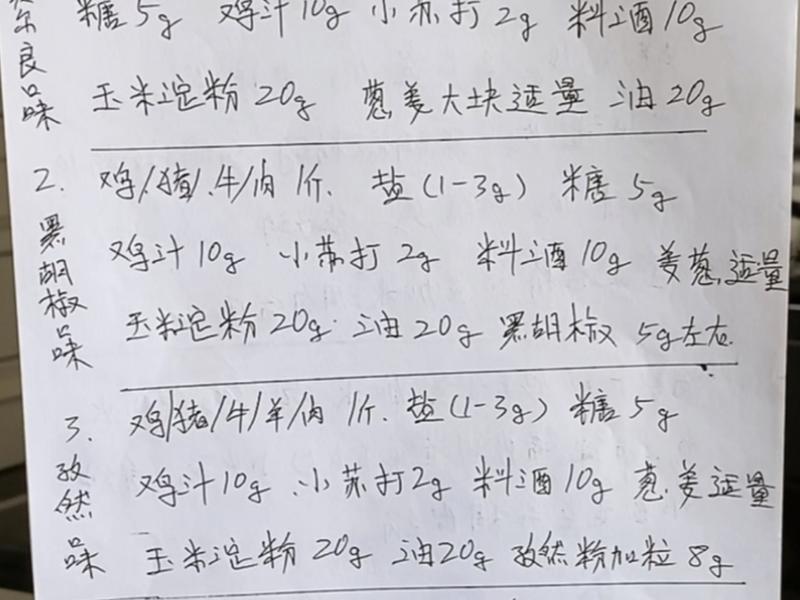 糖5g 鸡汁10g 小苏打2g 料酒10g
良品味
玉米淀粉20g 葱姜大块适量 油20g
2. 鸡/猪/牛/肉1斤. 盐(1-3g) 糖5g
黑胡椒味
鸡汁10g 小苏打2g 料酒10g 姜葱适量
玉米淀粉20g 油20g 黑胡椒5g左右.
3. 鸡/猪/牛/羊/肉1斤. 盐(1-3g) 糖5g
孜然品味
鸡汁10g 小苏打2g 料酒10g 葱.姜适量
玉米淀粉20g 油20g 孜然粉加粒8g